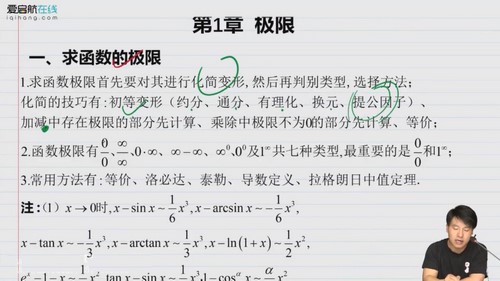 爱启航在线
iqihang.com
第1章 极限
一、求函数的极限
1.求函数极限首先要对其进行化简变形,然后再判别类型,选择方法;
化简的技巧有:初等变形(约分、通分、有理化、换元、提公因子)、
加减中存在极限的部分先计算、乘除中极限不为0的部分先计算、等价;
2.函数极限有0/0、∞/∞、0·∞、∞−∞、∞⁰、0⁰及1^∞共七种类型,最重要的是0/0和1^∞;
3.常用方法有:等价、洛必达、泰勒、导数定义、拉格朗日中值定理.
注:(1) x→0时, x−sin x ~ 1/6 x³, x−arcsin x ~ −1/6 x³,
x−tan x ~ −1/3 x³, x−arctan x ~ 1/3 x³, x−ln(1+x) ~ 1/2 x²,
eˣ−1−x ~ 1/2 x², tan x−sin x ~ 1/2 x³, 1−cos^α x ~ α/2 x²